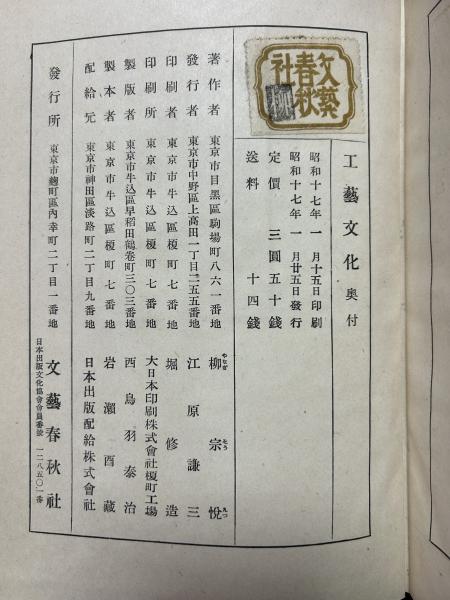 文藝
春秋
社
工藝文化 奥付
昭和十七年一月十五日印刷
昭和十七年一月廿五日發行
定價 三圓五十錢
送料 十四錢
著作者 東京市目黑區駒場町八六一番地 柳宗悅
やなぎ むね えつ
發行者 東京市中野區上高田一丁目二五五番地 江原謙三
印刷者 東京市牛込區榎町七番地 堀修造
印刷所 東京市牛込區榎町七番地 大日本印刷株式會社榎町工場
製版者 東京市牛込區早稻田鶴卷町三〇三番地 西鳥羽泰治
製本者 東京市牛込區榎町七番地 岩瀨酉藏
配給元 東京市神田區淡路町二丁目九番地 日本出版配給株式會社
發行所 東京市麴町區內幸町二丁目一番地 文藝春秋社
日本出版文化協會會員番號 一二八五〇一番